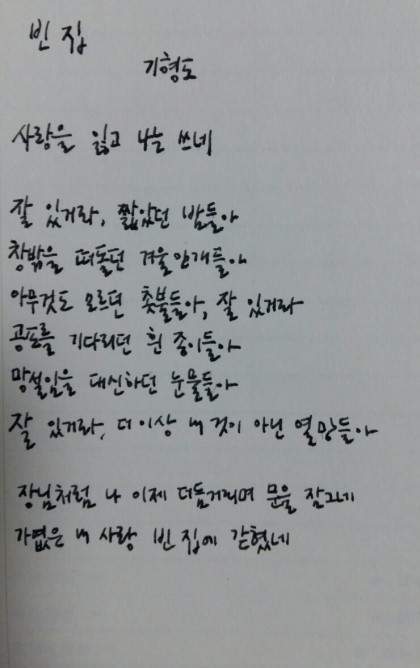 빈 집
기형도
사랑을 잃고 나는 쓰네
잘 있거라, 짧았던 밤들아
창밖을 떠돌던 겨울안개들아
아무것도 모르던 촛불들아, 잘 있거라
공포를 기다리던 흰 종이들아
망설임을 대신하던 눈물들아
잘 있거라, 더 이상 내 것이 아닌 열망들아
장님처럼 나 이제 더듬거리며 문을 잠그네
가엾은 내 사랑 빈 집에 갇혔네